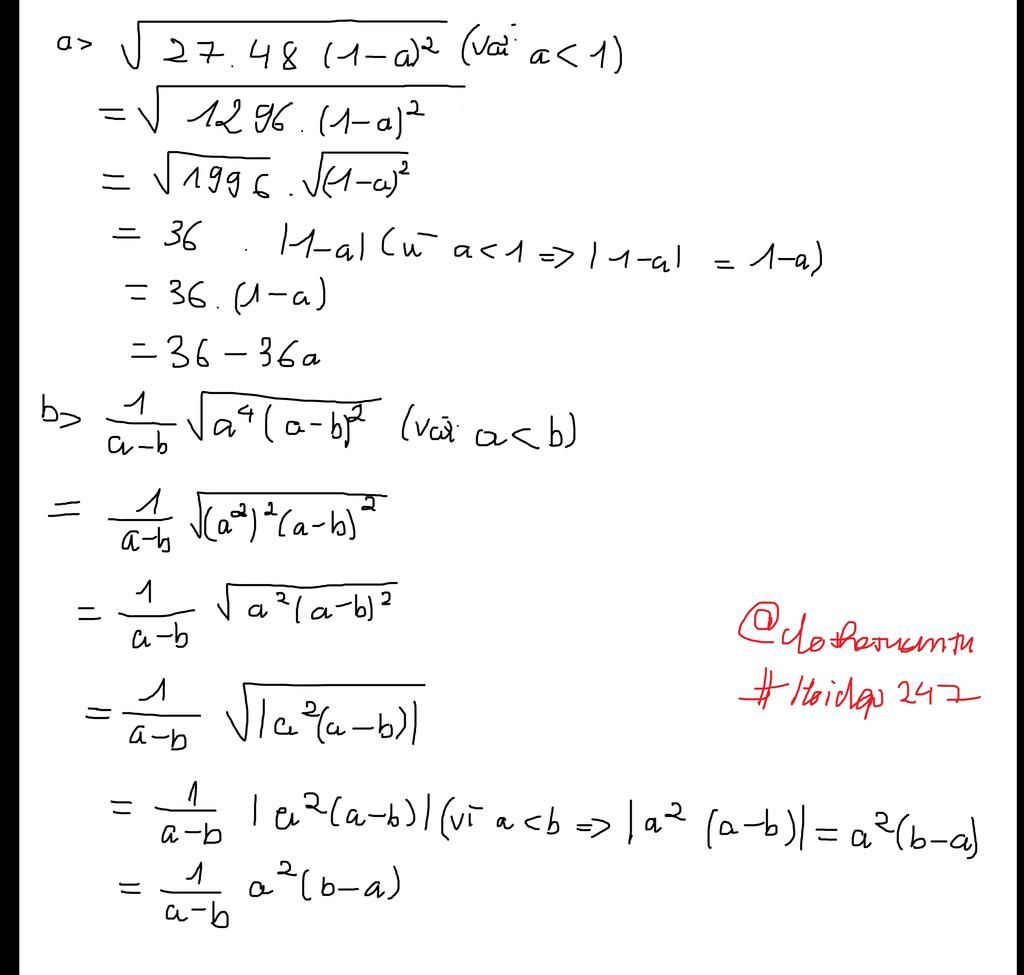 a> √27.48 (1-a)² (với a < 1)
= √1296. (1-a)²
= √1996 . √(1-a)²
= 36 . |1-a| (vì a < 1 => |1-a| = 1-a)
= 36. (1-a)
= 36 - 36a
b> 1/(a-b) √a⁴(a-b)² (với a < b)
= 1/(a-b) √(a²)²(a-b)²
= 1/(a-b) √a²(a-b)²
= 1/(a-b) √|a²(a-b)|
= 1/(a-b) |a²(a-b)| (vì a < b => |a² (a-b)| = a²(b-a)
= 1/(a-b) a²(b-a)